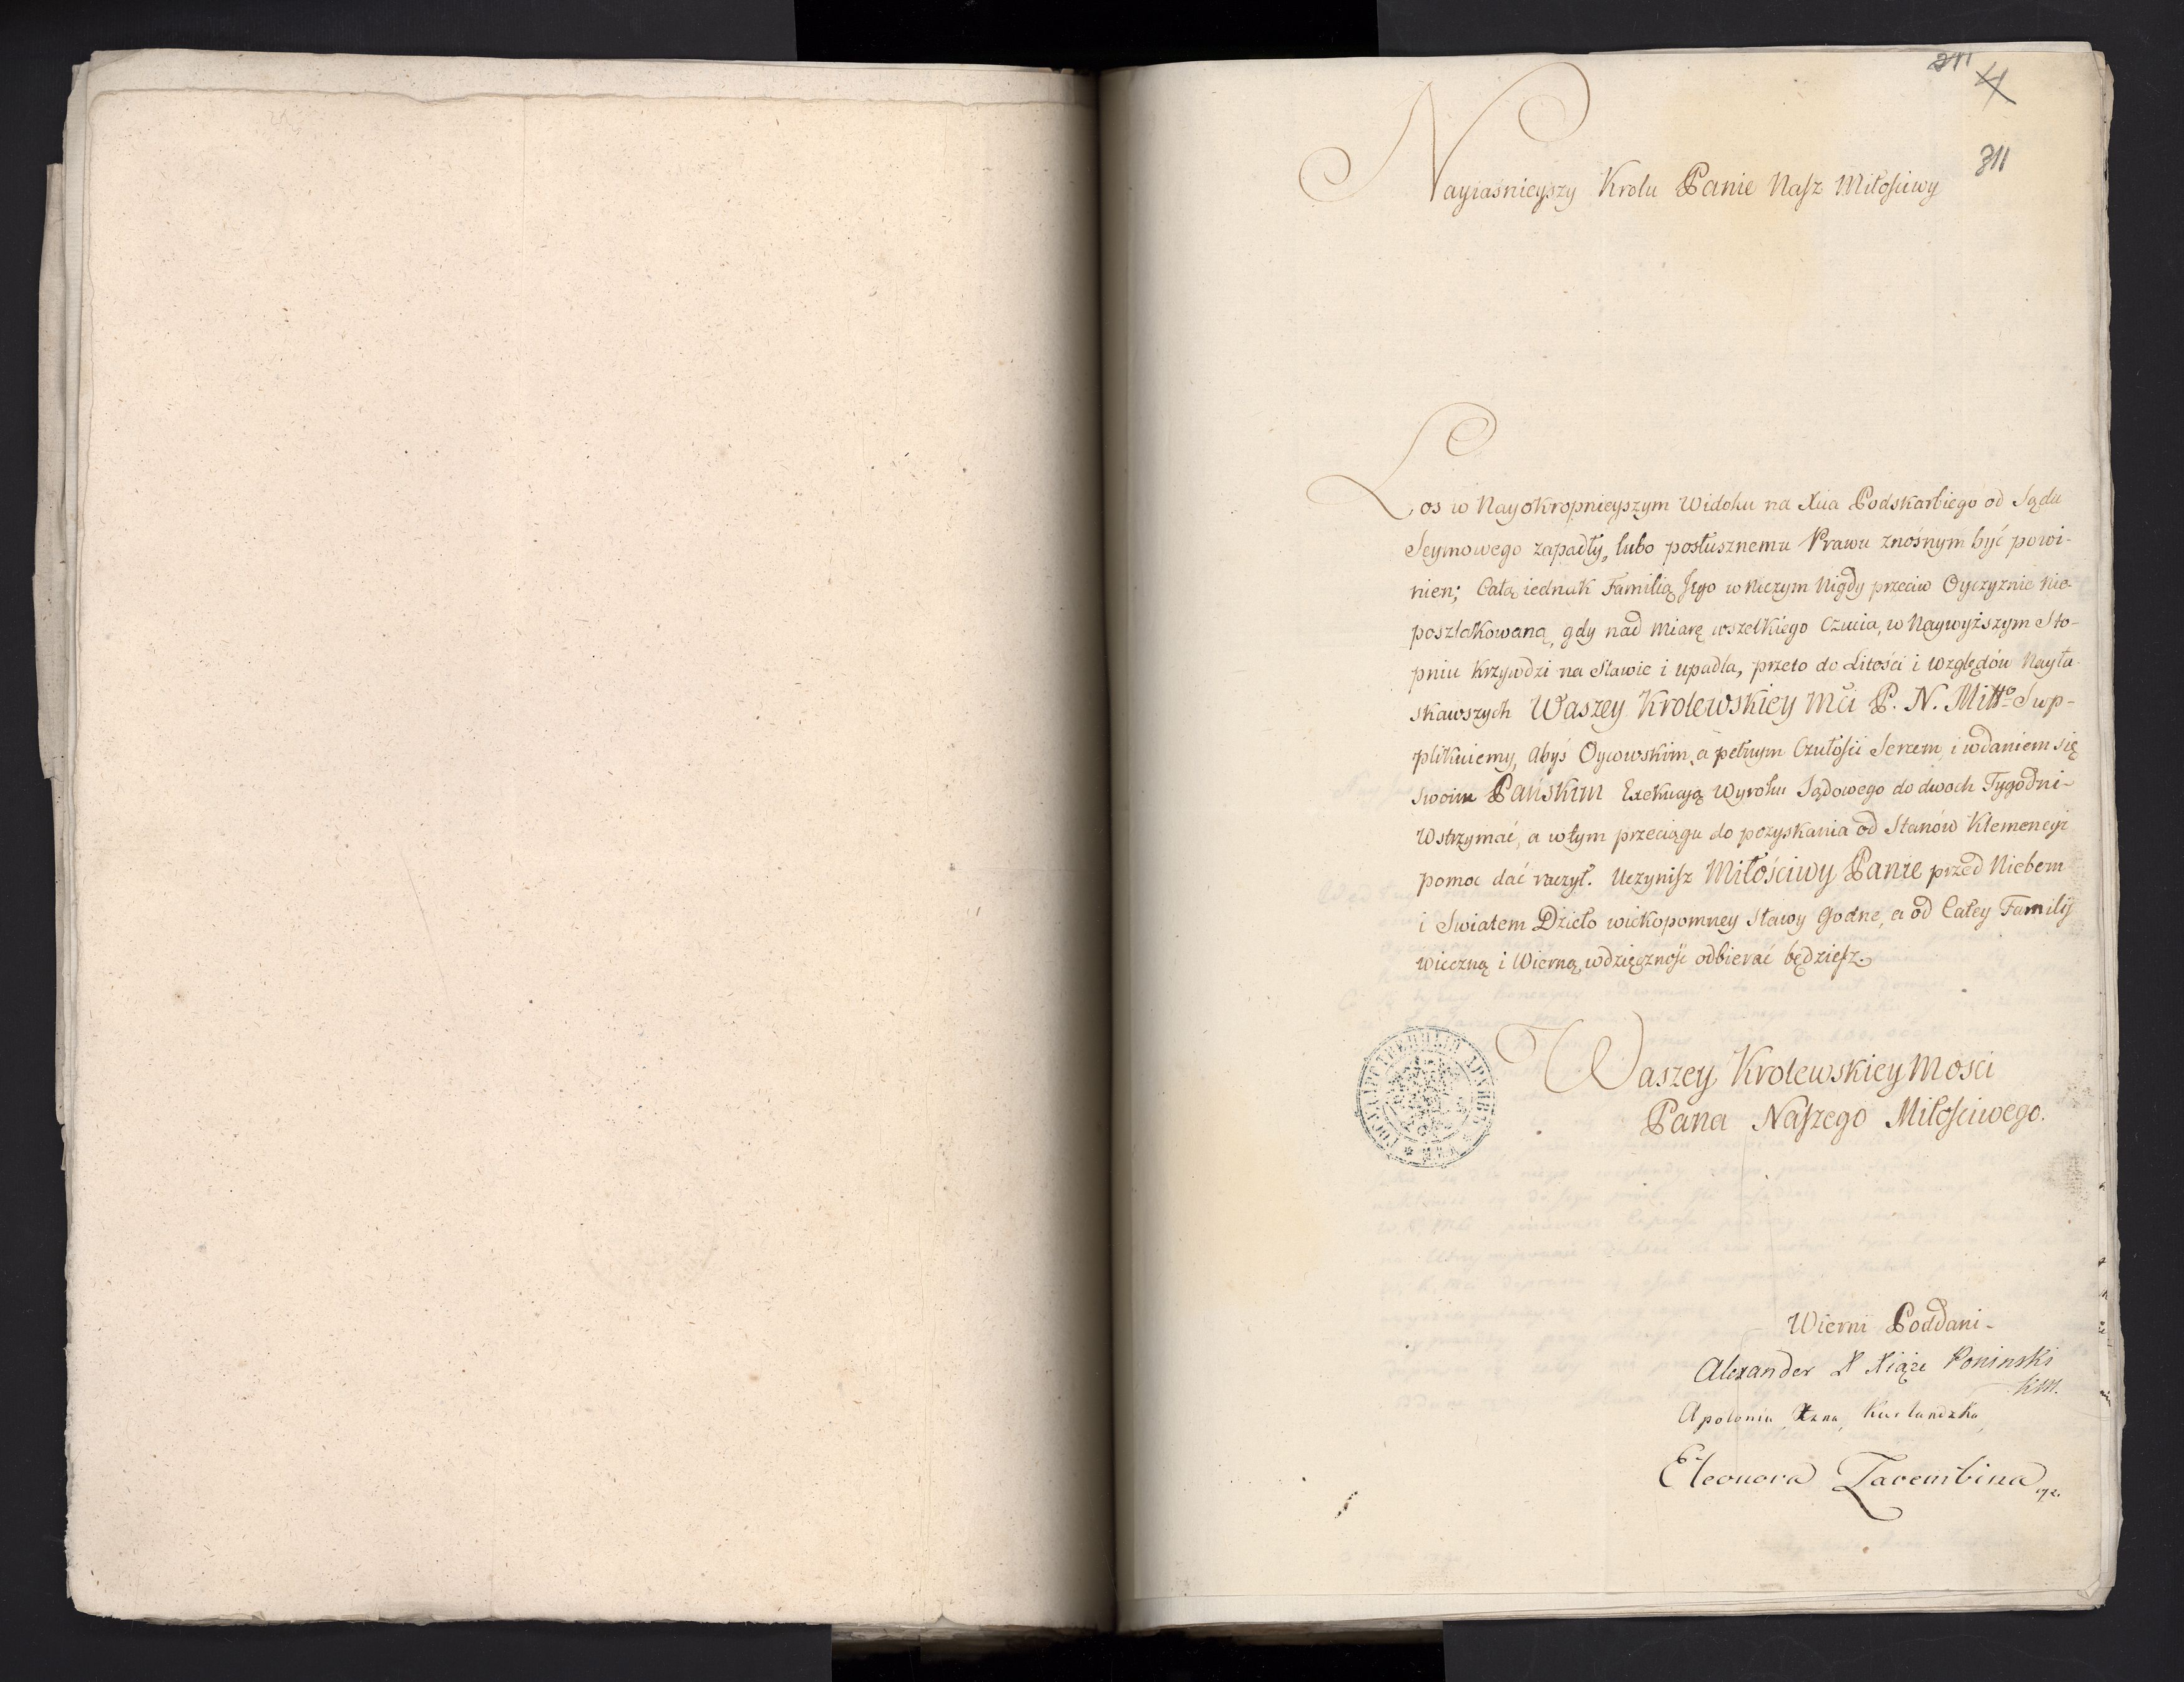 311
4
311
Nayiaśnieyszy Krolu Panie Nasz Miłosciwy
Los w Nayokropnieyszym Widoku na Xcia Podskarbiego od Sądu
Seymowego zapadły, lubo posłusznemu Prawu znośnym być powi-
nien; Całą iednak Familią Jego w niczym Nigdy przeciw Oyczyznie nie
poszlakowaną, gdy nad miarę wszelkiego Czucia, w Naywyższym Sto-
pniu Krzywdzi na Sławie i upadla, przeto do Litości i Względów Nayła-
skawszych Waszey Krolewskiey Mci P. N. Miłło Sup-
plikuiemy, Abyś Oycowskim, a pełnym Czułości Sercem, i wdaniem się
Swoim Pańskim Exekucyą Wyroku Sądowego do dwoch Tygodni-
Wstrzymać, a w tym przeciągu do pozyskania od Stanów Klemencyi
pomoc dać raczył. Uczynisz Miłościwy Panie przed Niebem
i Swiatem Dzieło wiekopomney Sławy Godne, a od Całey Familij
wieczną i Wierną wdzięczność odbierać będziesz.
Waszey Krolewskiey Mosci
Pana Naszego Miłosciwego.
Wierni Poddani-
Alexander X Xiąże Poninski
KM.
Apolonia Xzna Kurlandzka
Eleonora Zarembina